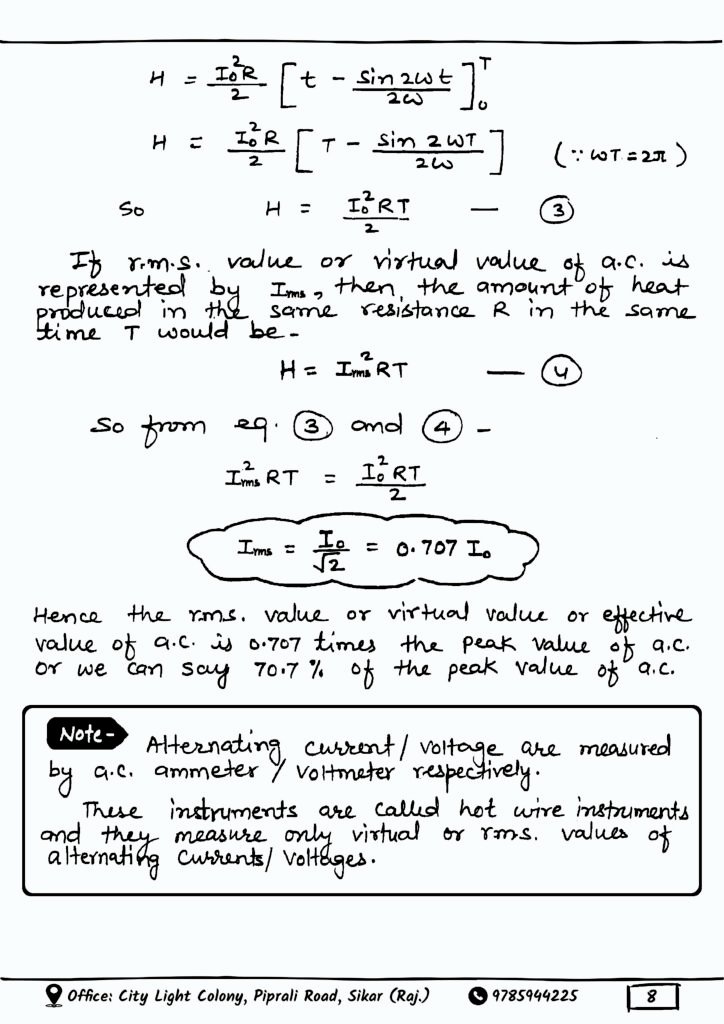 H = I₀²R/2 [t - sin 2ωt/2ω]₀ᵀ
H = I₀²R/2 [T - sin 2ωT/2ω] (∵ ωT = 2π)
So H = I₀²RT/2 — ③
If r.m.s. value or virtual value of a.c. is
represented by Irms, then, the amount of heat
produced in the same resistance R in the same
time T would be -
H = Irms² RT — ④
So from eq. ③ and ④ -
Irms² RT = I₀² RT/2
Irms = I₀/√2 = 0.707 I₀
Hence the r.m.s. value or virtual value or effective
value of a.c. is 0.707 times the peak value of a.c.
or we can say 70.7 % of the peak value of a.c.
Note- Alternating current/ voltage are measured
by a.c. ammeter / voltmeter respectively.
These instruments are called hot wire instruments
and they measure only virtual or r.m.s. values of
alternating currents/ voltages.
Office: City Light Colony, Piprali Road, Sikar (Raj.) 9785944225 8